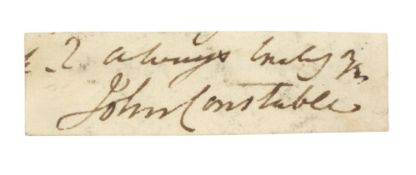 & I always truly yrs
John Constable